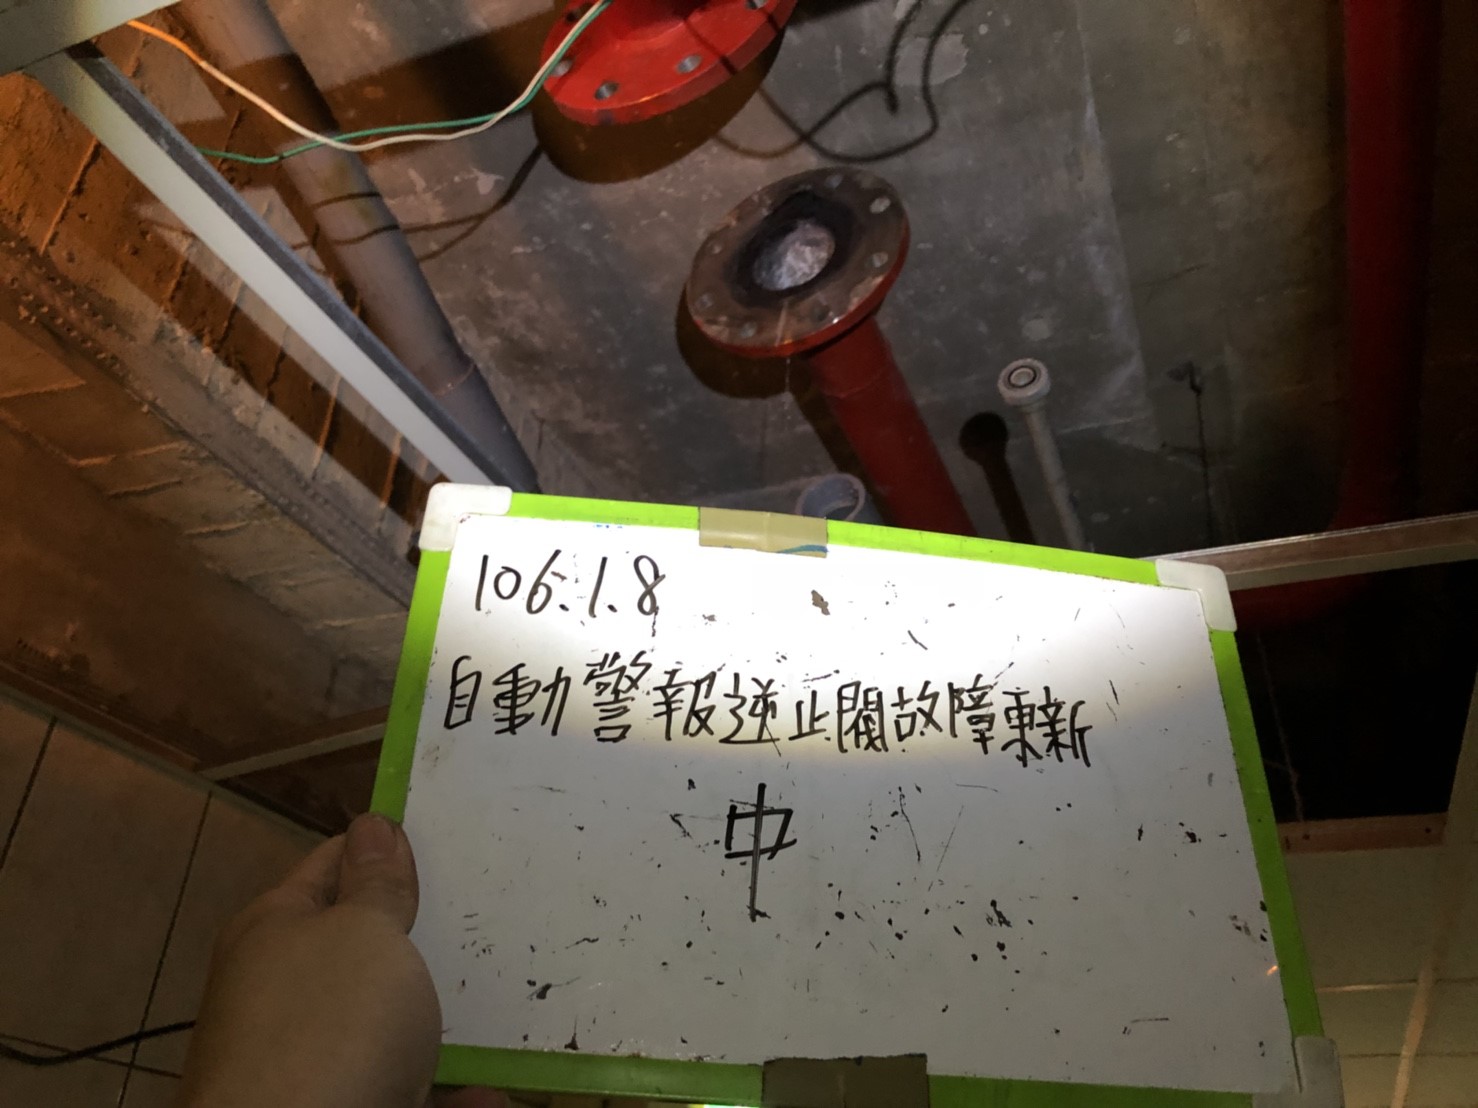 106.1.8
自動警報逆止閥故障更新
中